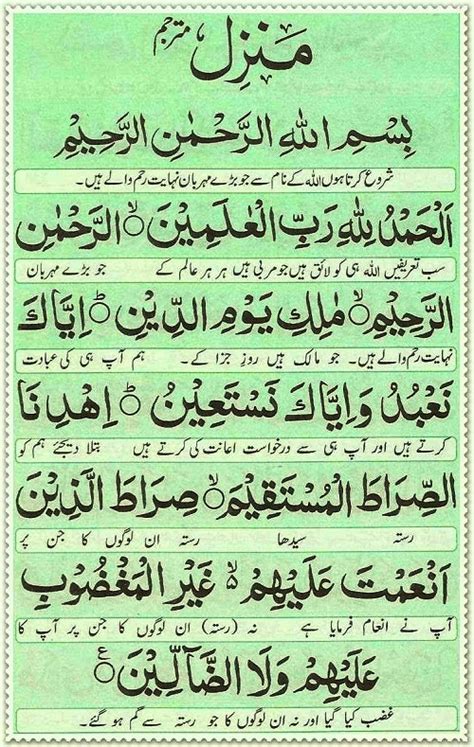 مَنْزِل مترجم
بِسْمِ اللهِ الرَّحْمٰنِ الرَّحِيْمِ
شروع کرتا ہوں اللہ کے نام سے جو بڑے مہربان نہایت رحم والے ہیں۔
اَلْحَمْدُ لِلّٰهِ رَبِّ الْعٰلَمِيْنَ ۙ الرَّحْمٰنِ
سب تعریفیں اللہ ہی کو لائق ہیں جو مربی ہیں ہر ہر عالم کے جو بڑے مہربان
الرَّحِيْمِ ۙ مٰلِكِ يَوْمِ الدِّيْنِ ؕ اِيَّاكَ
نہایت رحم والے ہیں۔ جو مالک ہیں روزِ جزا کے۔ ہم آپ ہی کی عبادت
نَعْبُدُ وَاِيَّاكَ نَسْتَعِيْنُ ؕ اِهْدِنَا
کرتے ہیں اور آپ ہی سے درخواست اعانت کی کرتے ہیں بتلا دیجئے ہم کو
الصِّرَاطَ الْمُسْتَقِيْمَ ۙ صِرَاطَ الَّذِيْنَ
رستہ سیدھا رستہ ان لوگوں کا جن پر
اَنْعَمْتَ عَلَيْهِمْ ۙ غَيْرِ الْمَغْضُوْبِ
آپ نے انعام فرمایا ہے نہ (رستہ) ان لوگوں کا جن پر آپ کا
عَلَيْهِمْ وَلَا الضَّآلِّيْنَ ۠
غضب کیا گیا اور نہ ان لوگوں کا جو رستہ سے گم ہو گئے۔